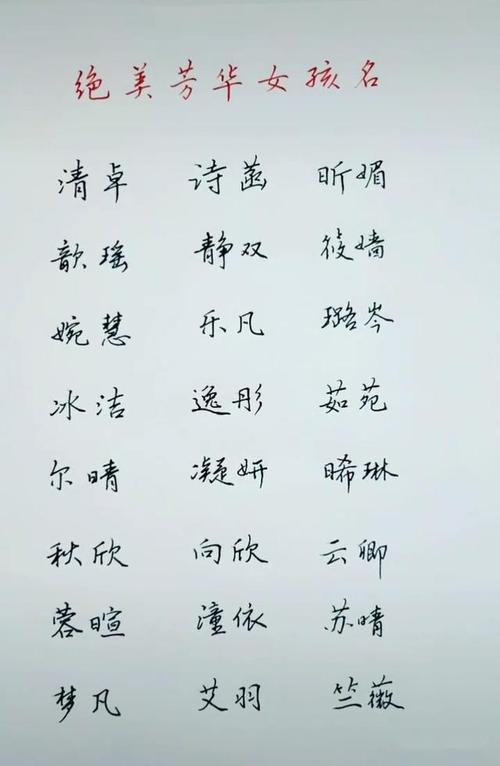 绝美芳华女孩名
清卓 诗菡 昕媚
歆瑶 静双 筱嫱
婉慧 乐凡 璐岑
冰洁 逸彤 茹苑
尔晴 凝妍 晞琳
秋欣 向欣 云卿
蓉暄 潼依 苏晴
梦凡 艾羽 竺薇